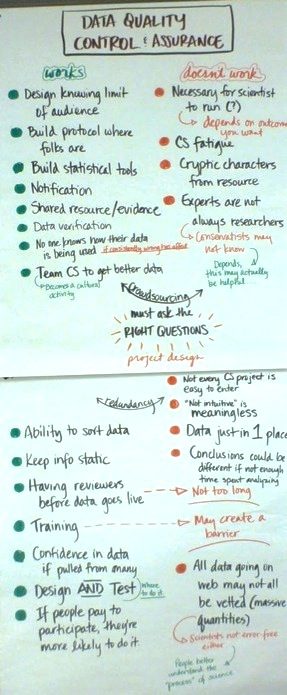 DATA QUALITY
CONTROL & ASSURANCE
works
Design knowing limit
of audience
Build protocol where
folks are
Build statistical tools
Notification
Shared resource/evidence
Data verification
No one knows how their data
is being used if consistently wrong has affect
Team CS to get better data
Becomes a cultural
activity
doesn't work
Necessary for scientist
to run (?)
depends on outcome
you want
CS fatigue
Cryptic characters
from resource
Experts are not
always researchers
Conservatists may
not know
Depends,
this may actually
be helpful
Crowdsourcing
must ask the
RIGHT QUESTIONS
project design
redundancy
Ability to sort data
Keep info static
Having reviewers
before data goes live
Training
Confidence in data
if pulled from many
Design AND Test where
to do it
If people pay to
participate, they're
more likely to do it
Not every CS project is
easy to enter
"Not intuitive" is
meaningless
Data just in 1 place
Conclusions could be
different if not enough
time spent analyzing
Not too long
May create a
barrier
All data going on
web may not all
be vetted (massive
quantities)
Scientists not error free
either
People better
understand the
"process" of science